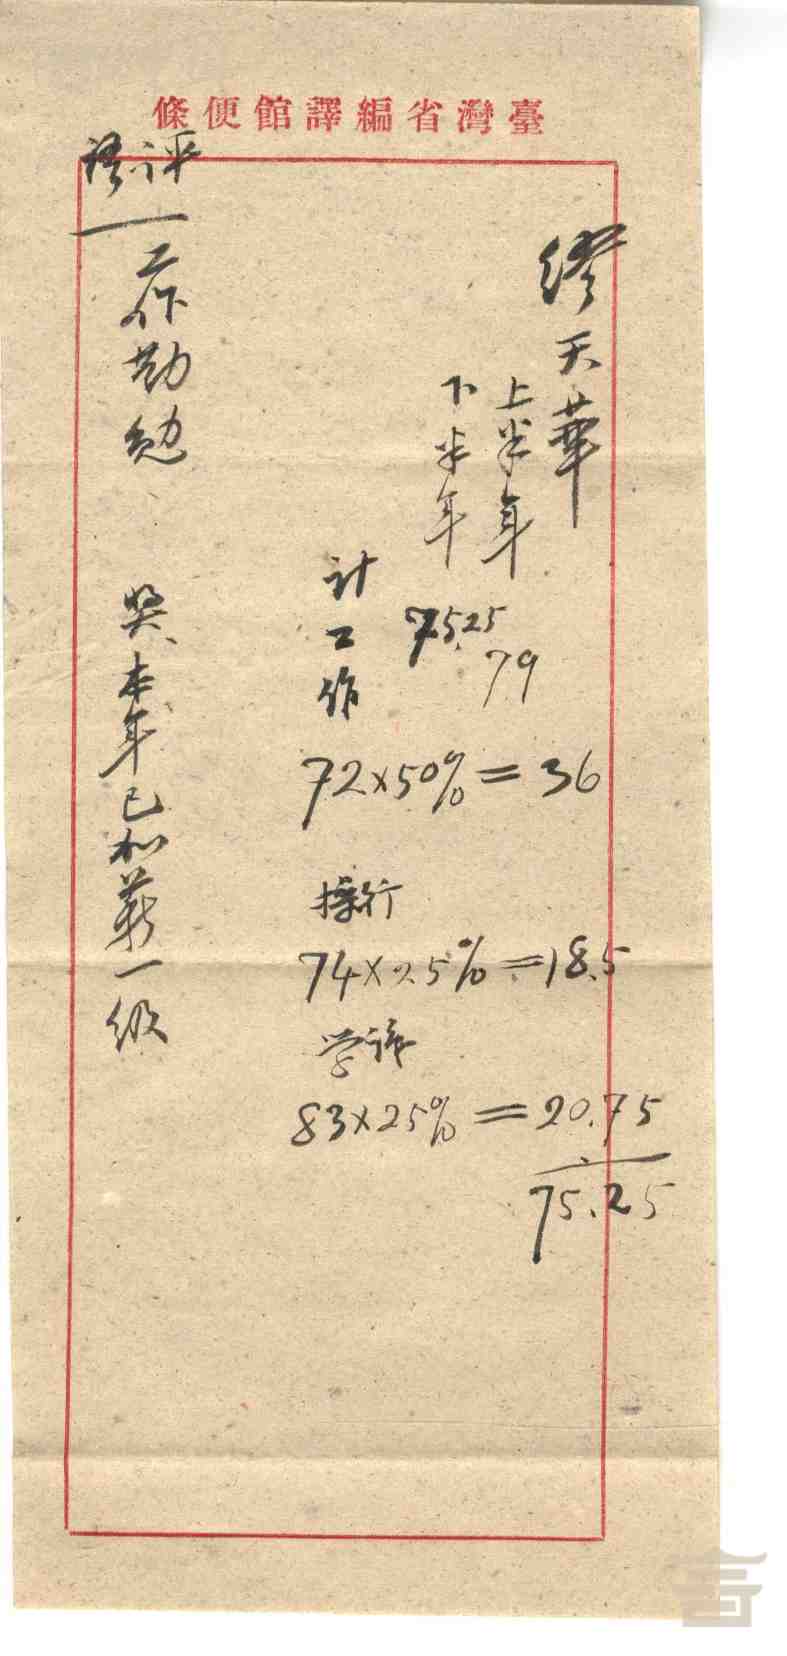 臺灣省編譯館便條
繆天華
上半年 79
下半年 75.25
計工作
72×50%=36
操行
74×25%=18.5
学識
83×25%=20.75
75.25
評語
工作勤勉
奬、本年已加薪一级